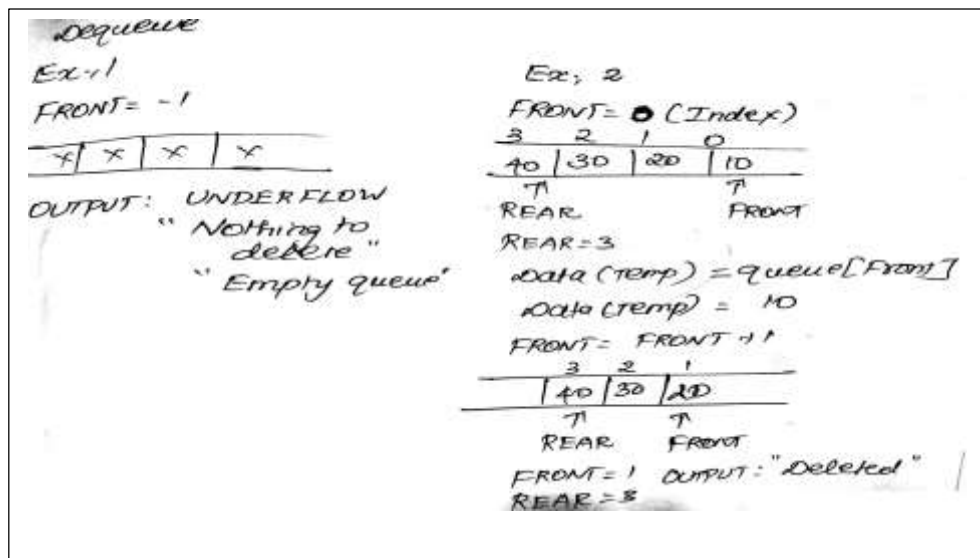 Dequeue
Ex:1
FRONT = -1
x | x | x | x
OUTPUT: UNDERFLOW
"Nothing to
delete"
"Empty queue"
Ex: 2
FRONT = 0 (Index)
3 2 1 0
40 | 30 | 20 | 10
↑ ↑
REAR FRONT
REAR = 3
Data (Temp) = queue[Front]
Data (Temp) = 10
FRONT = FRONT +1
3 2 1
| 40 | 30 | 20
↑ ↑
REAR FRONT
FRONT = 1 OUTPUT: "Deleted"
REAR = 3